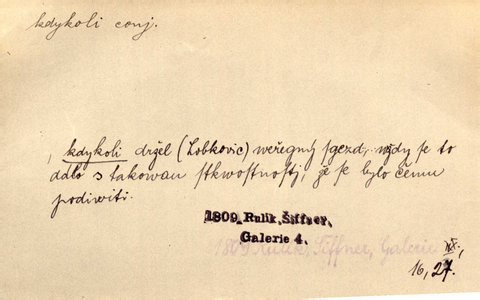 kdykoli conj.
, kdykoli držel (Lobkovic) weřegný sgezd, wždy se to
dálo s takowau skwostnostj, že se bylo čemu
podiwiti.
1809 Rulík, Šiffner,
Galerie 4.
1809 Rulík, Šiffner, Galerie
16, 27.